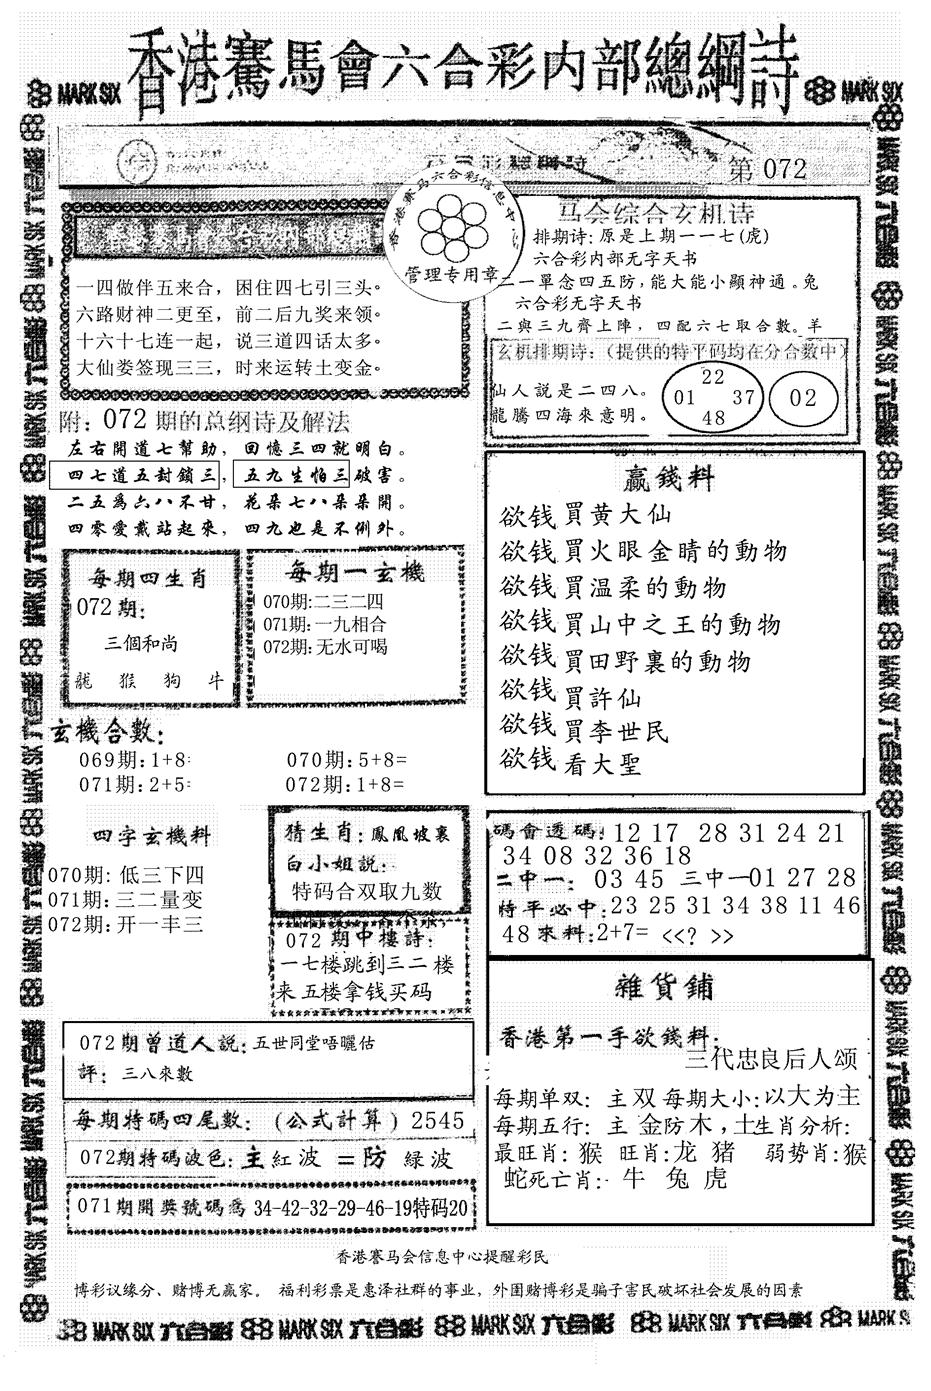 香港賽馬會六合彩内部總綱詩
MARK SIX
MARK SIX
第 072
香港赛马六合彩信息中心
管理专用章
一四做伴五来合，困住四七引三头。
六路财神二更至，前二后九奖来领。
十六十七连一起，说三道四话太多。
大仙娄签现三三，时来运转土变金。
马会综合玄机诗
排期诗:原是上期一一七(虎)
六合彩内部无字天书
二一單念四五防,能大能小顯神通。兔
六合彩无字天书
二與三九齊上陣，四配六七取合數。羊
玄机排期诗:（提供的特平码均在分合数中）
仙人説是二四八。
龍騰四海來意明。
22
01 37
48
02
附：072期的总纲诗及解法
左右開道七幫助，回憶三四就明白。
四七道五封鎖三，五九生怕三破害。
二五爲六八不甘，花朵七八朵朵開。
四零愛戴站起來，四九也是不例外。
每期四生肖
072期：
三個和尚
龍 猴 狗 牛
每期一玄機
070期:二三二四
071期:一九相合
072期:无水可喝
赢錢料
欲钱買黄大仙
欲钱買火眼金晴的動物
欲钱買温柔的動物
欲钱買山中之王的動物
欲钱買田野裏的動物
欲钱買許仙
欲钱買李世民
欲钱看大聖
玄機合數：
069期:1+8=
070期:5+8=
071期:2+5=
072期:1+8=
四字玄機料
070期: 低三下四
071期:三二量变
072期:开一丰三
猜生肖:鳳凰坡裏
白小姐説:
特码合双取九数
072期中樓詩:
一七楼跳到三二楼
来五楼拿钱买码
碼會透碼:12 17 28 31 24 21
34 08 32 36 18
二中一: 03 45 三中一01 27 28
特平必中:23 25 31 34 38 11 46
48來料:2+7= <<? >>
072期曾道人説:五世同堂唔曬估
評: 三八來數
每期特碼四尾數:（公式計算）2545
072期特碼波色:主紅波 =防 緑波
071期開獎號碼爲34-42-32-29-46-19特码20
雜貨鋪
香港第一手欲錢料:
三代忠良后人颂
每期单双: 主双 每期大小:以大为主
每期五行: 主 金防木，土生肖分析:
最旺肖: 猴 旺肖:龙 猪 弱势肖:猴
蛇死亡肖: 牛 兔 虎
香港賽马会信息中心提醒彩民
博彩议缘分、赌博无赢家。 福利彩票是惠泽社群的事业，外围赌博彩是骗子害民破坏社会发展的因素
MARK SIX 六合彩 MARK SIX 六合彩 MARK SIX 六合彩 MARK SIX 六合彩 MARK SIX